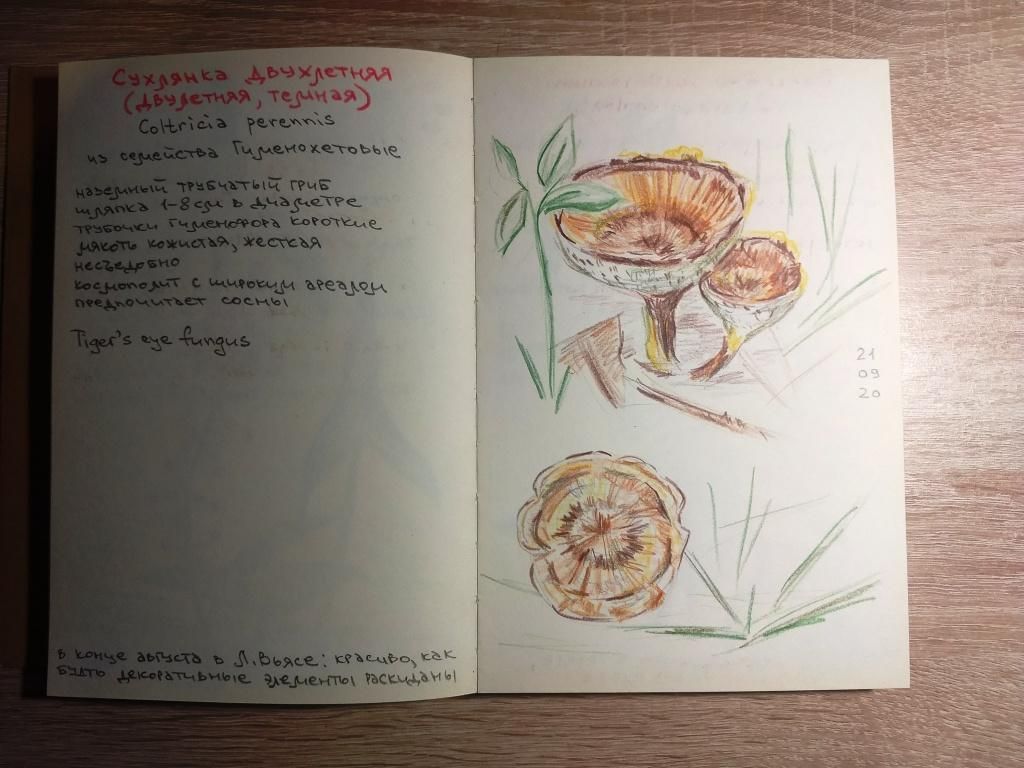 Сухлянка двухлетняя
(двулетняя, темная)
Coltricia perennis
из семейства Гименохетовые
наземный трубчатый гриб
шляпка 1-8 см в диаметре
трубочки гименофора короткие
мякоть кожистая, жесткая
несъедобно
космополит с широким ареалом
предпочитает сосны
Tiger's eye fungus
в конце августа в Л.Вьясе: красиво, как
будто декоративные элементы раскиданы
21
09
20